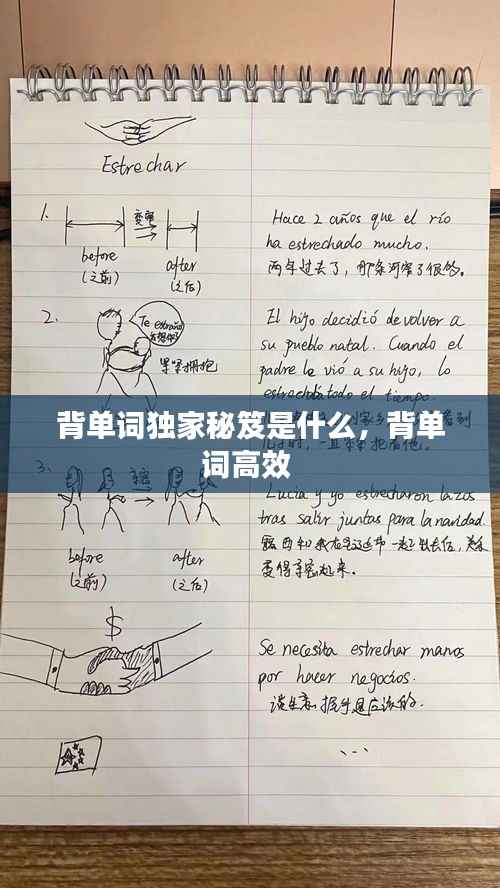 Estrechar
1.
变窄
before
(之前)
after
(之后)
Hace 2 años que el río
ha estrechado mucho.
两年过去了，那条河窄了很多。
2.
Te extraño
紧紧拥抱
El hijo decidió devolver a
su pueblo natal. Cuando el
padre le vió a su hijo, lo
estrechó todo el tiempo
背单词独家秘笈是什么，背单
词高效
3.
亲密
before
(之前)
after
(之后)
Lucía y yo estrecharon lazos
tras salir juntas para la navidad.
变得亲密起来。
$
Se necesita estrechar manos
por hacer negocios.
谈生意握手是应该的.
...